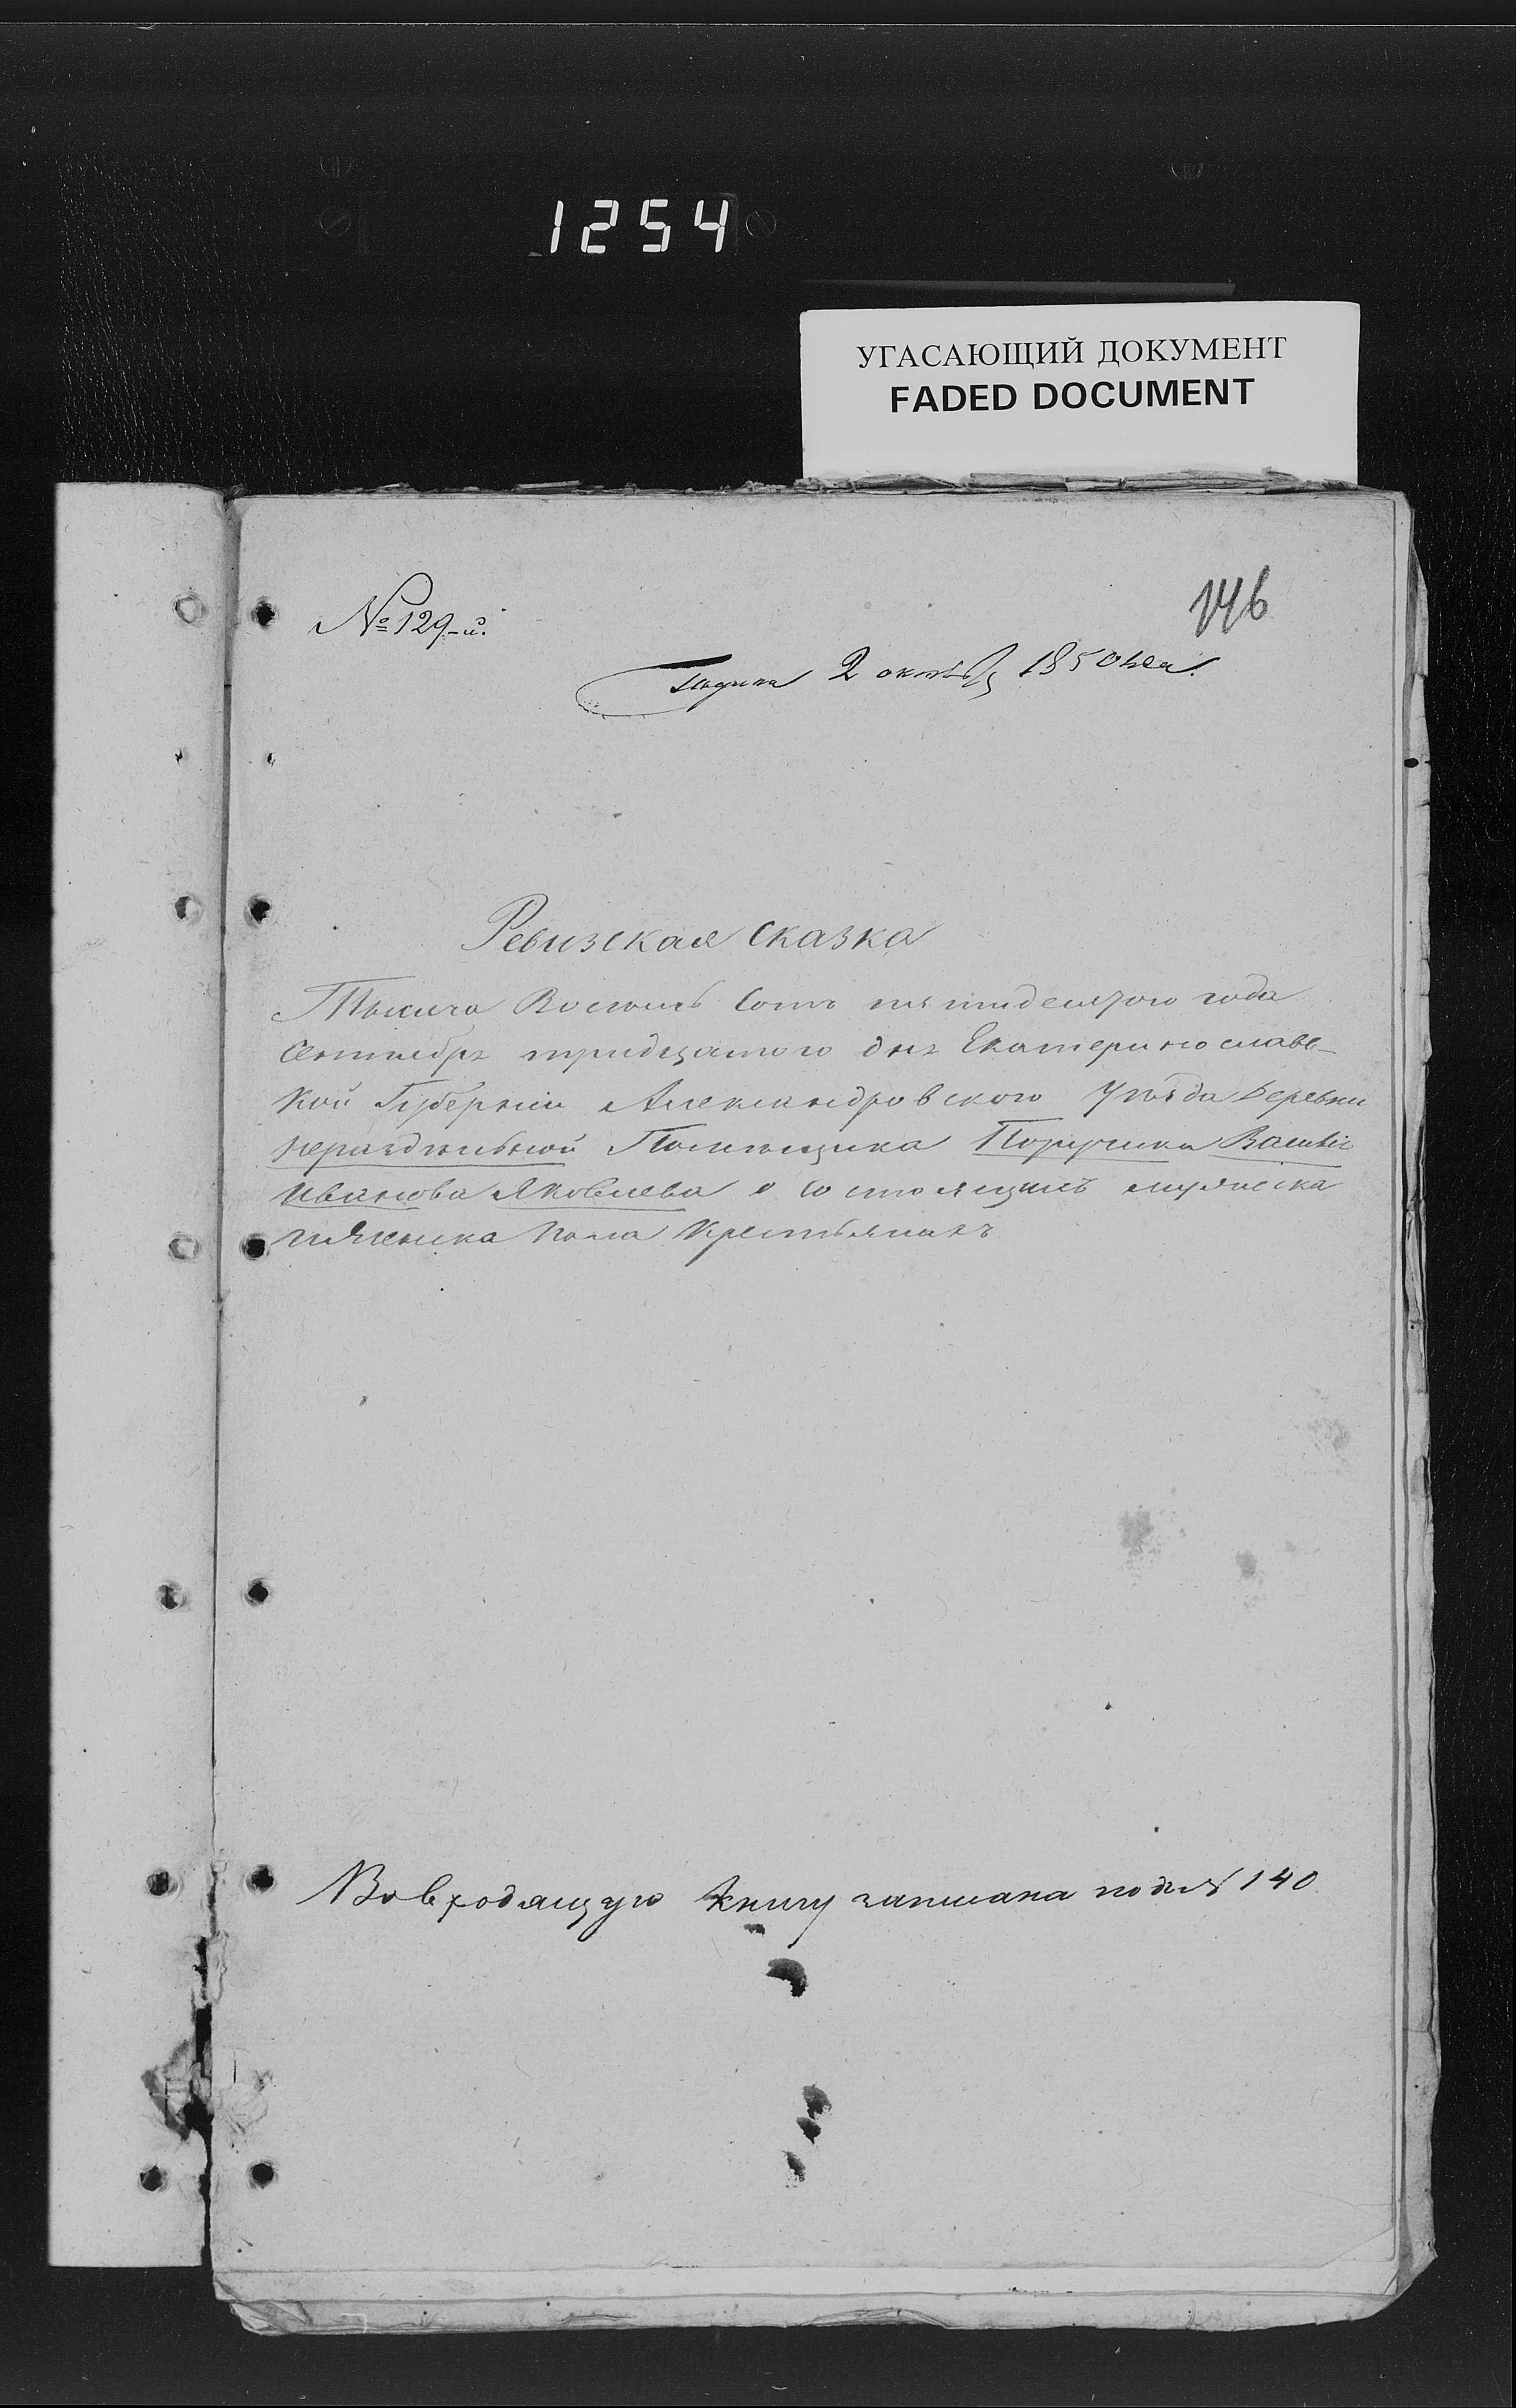 1254
УГАСАЮЩИЙ ДОКУМЕНТ
FADED DOCUMENT
№ 129-й.
146
Подана 2 октяб 1850 года.
Ревизская сказка
Тысяча Восемь Сотъ пятидесятого года
Сентября тридцатого дня Екатеринославс-
кой Губерніи Александровского Уѣзда Деревни
нераздѣльной Помѣщика Поручика Василія
Иванова Яковлева о состоящихъ мужеска
и женска пола Крестьянахъ
Во входящую книгу записана подъ № 140